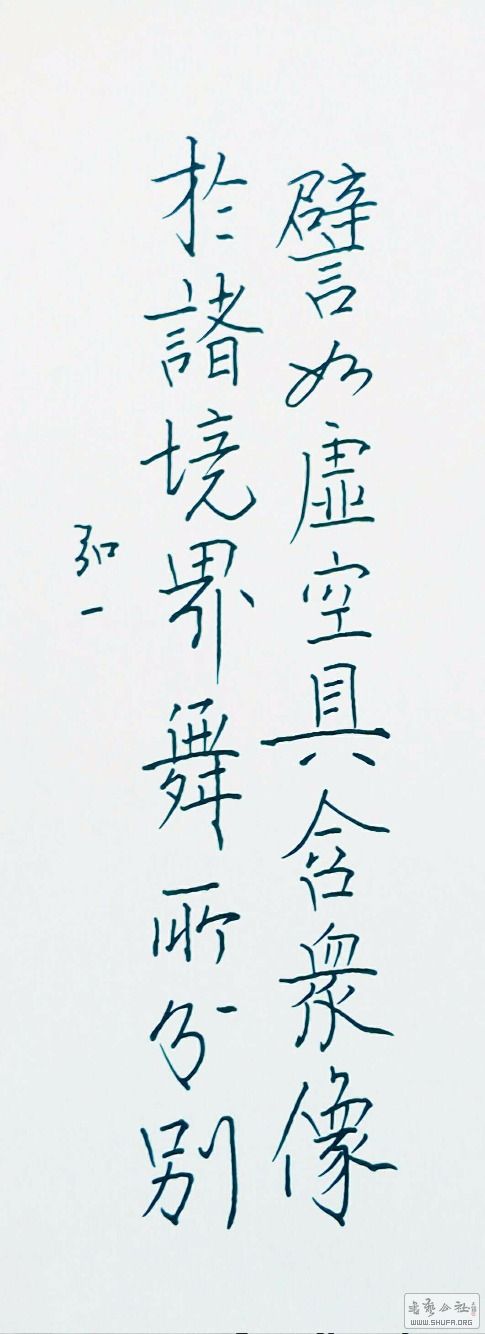 譬如虛空具含衆像
於諸境界舞所分別
弘一
書藝公社
WWW.SHUFA.ORG